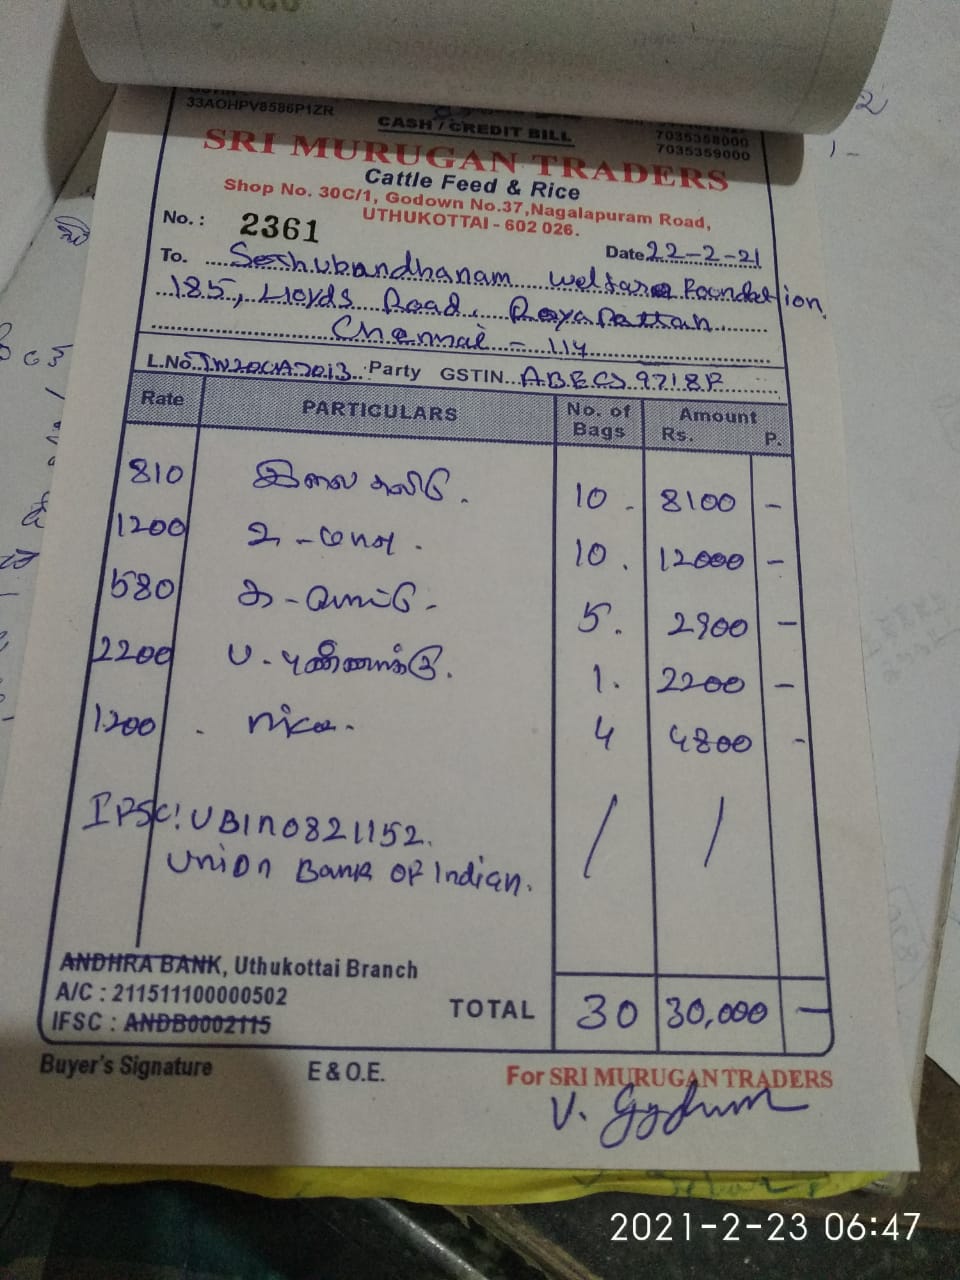 33AOHPV8586P1ZR
CASH / CREDIT BILL
7035358000
7035359000
SRI MURUGAN TRADERS
Cattle Feed & Rice
Shop No. 30C/1, Godown No.37,Nagalapuram Road,
UTHUKOTTAI - 602 026.
No.: 2361 Date 22-2-21
To. Seshubandhanam Welfare Foundation,
185, Lloyds Road, Royapettah
Chennai - 114
L.No. Party GSTIN. ABECS9718P
Rate PARTICULARS No. of Bags Amount Rs. P.
810 10 - 8100 -
1200 10. 12000 -
580 5. 2900 -
2200 ப. புண்ணாக்கு. 1. 2200 -
1200 . rice. 4 4800 -
IFSC: UBIN0821152.
Union Bank OF Indian.
ANDHRA BANK, Uthukottai Branch
A/C : 211511100000502
IFSC : ANDB0002115
TOTAL 30 30,000 -
Buyer's Signature E & O.E. For SRI MURUGAN TRADERS
2021-2-23 06:47